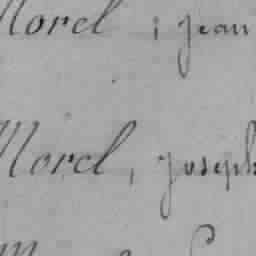 Morel ; jean
Morel, joseph